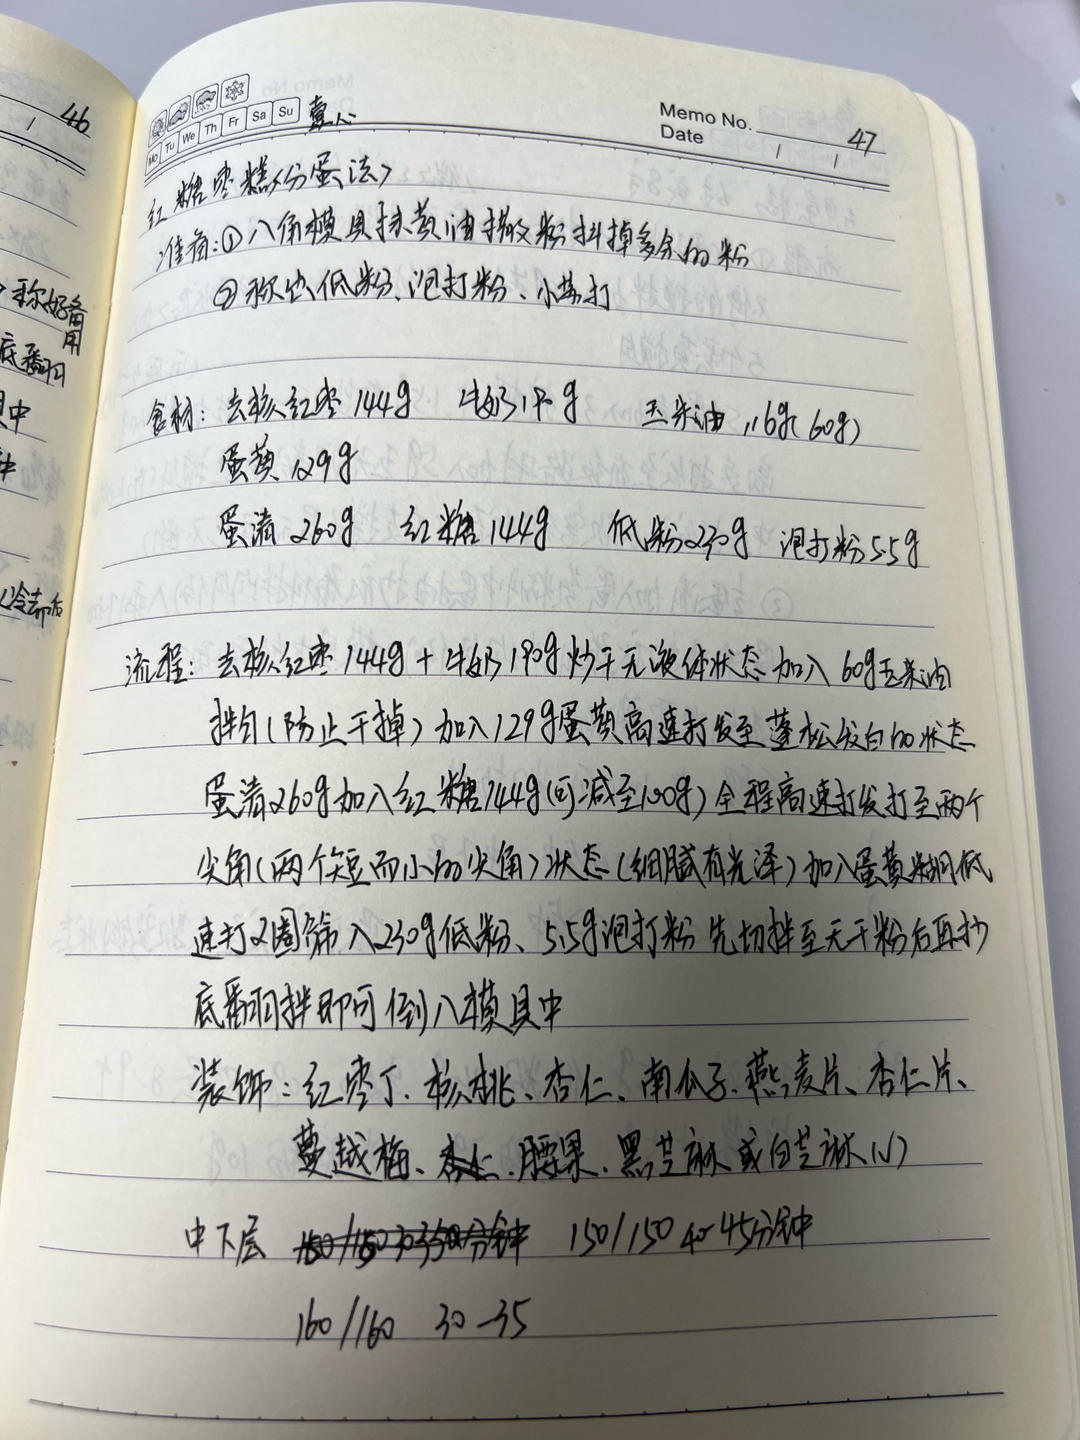 46
1
称好备用
底翻
中
冷却后
Mo Tu We Th Fr Sa Su
Memo No. 47
Date / /
红糖枣糕(分蛋法)
准备:①八角模具抹黄油撒粉抖掉多余的粉
②称出低粉、泡打粉、小苏打
食材:去核红枣144g 牛奶190g 玉米油116g(60g)
蛋黄129g
蛋清260g 红糖144g 低粉230g 泡打粉5.5g
流程:去核红枣144g+牛奶190g炒干无液体状态加入60g玉米油
拌匀(防止干掉)加入129g蛋黄高速打发至蓬松发白的状态
蛋清260g加入红糖144g(可减至100g)全程高速打发打至两个
尖角(两个短而小的尖角)状态(细腻有光泽)加入蛋黄糊低
速打2圈筛入230g低粉、5.5g泡打粉先切拌至无干粉后再抄
底翻拌即可倒入模具中
装饰:红枣丁、核桃、杏仁、南瓜子、燕麦片、杏仁片、
蔓越梅、杏仁、腰果、黑芝麻或白芝麻(√)
中下层 150/150 30-35分钟 150/150 40-45分钟
160/160 30-35